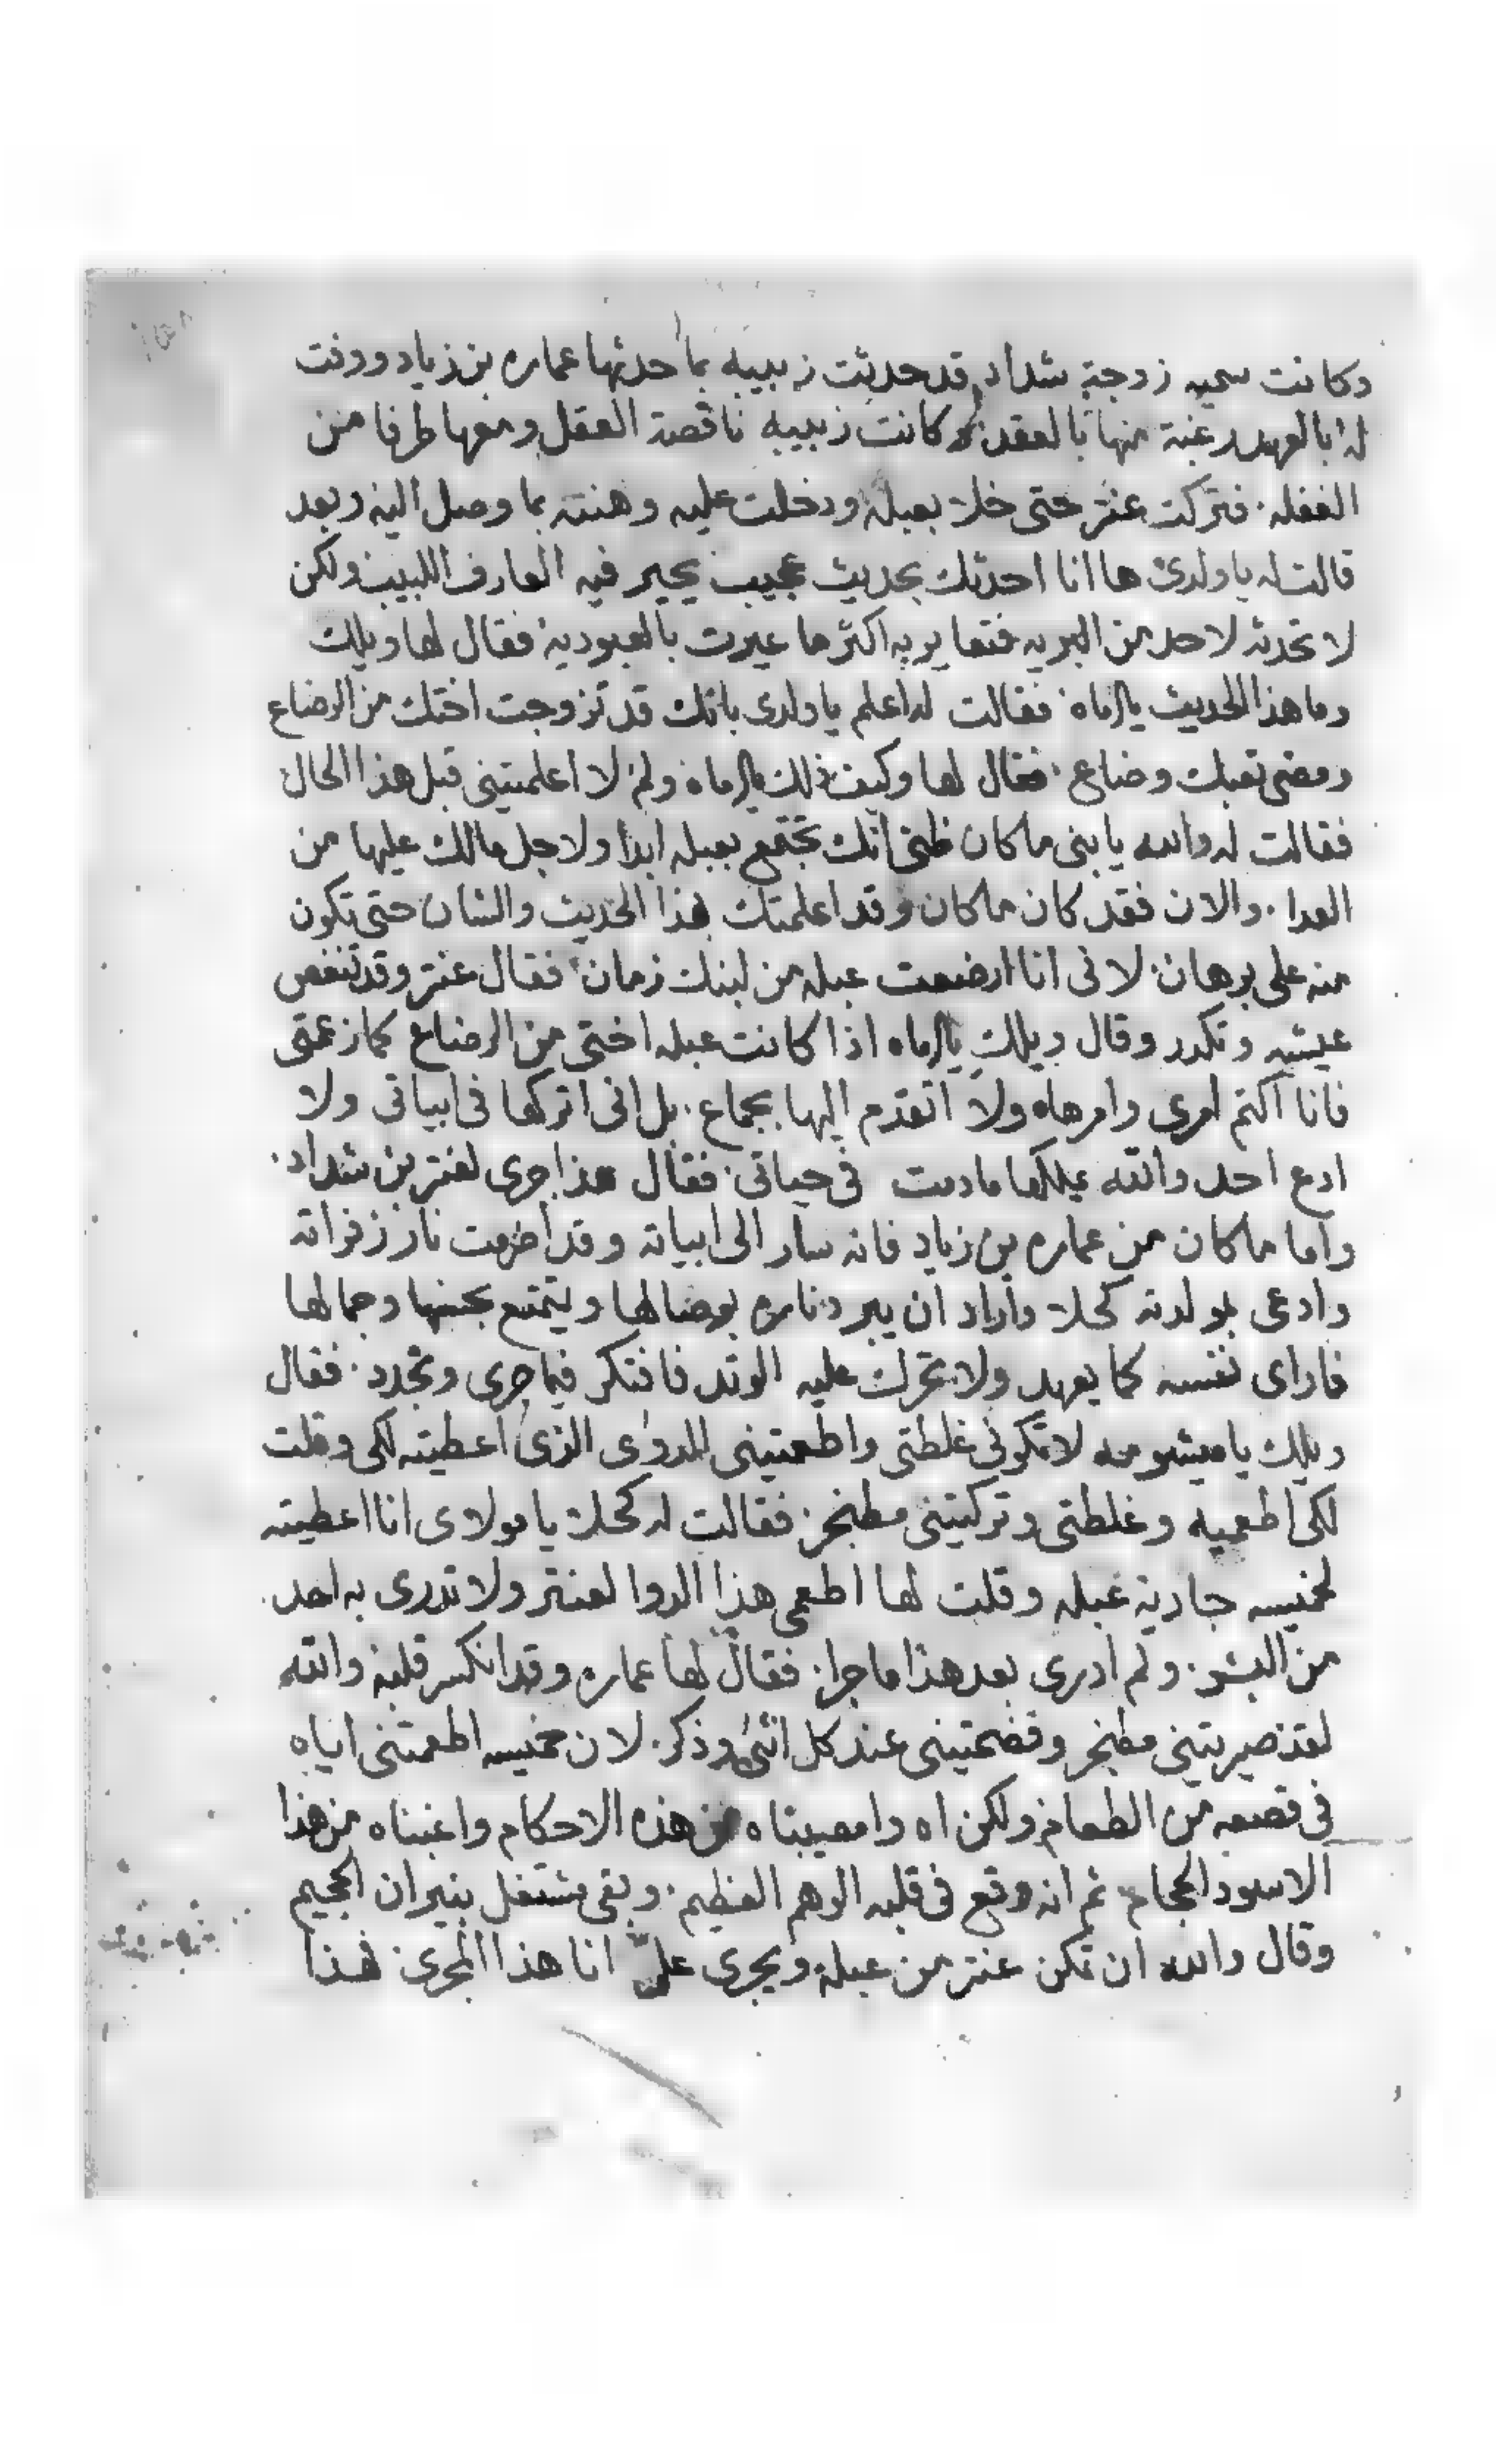 وكانت سميه زوجة شداد قد حدثت زبيبه بما حدثها عماره بن زياد ووفت
له بالعهد رغبة منها بالعقد. وكانت زبيبه ناقصة العقل ومعها طرفا من
الغفله. فتركت عنتر حتى خلا بعبلة ودخلت عليه وهنته بما وصل اليه وبعد
قالت له يا ولدي ها انا احدثك بحديث عجيب يحير فيه العارف اللبيب ولكن
لا تحدثه لاحد من البريه فتعاير به اكثر ما عيرت بالعبودية فقال لها ويلك
وما هذا الحديث يا اماه. فقالت له اعلم يا ولدي بانك قد تزوجت اختك من الرضاع
ومضى تعبك وضاع. فقال لها وكيف ذلك يا اماه ولم لا اعلمتيني قبل هذا الحال
فقالت له والله يا بني ما كان ظني انك تجتمع بعبله ابدا ولاجل مالك عليها من
العدا. والان فقد كان ما كان وقد اعلمتك بهذا الحديث والشان حتى تكون
منه على برهان. لاني انا ارضعت عبله من لبنك زمان. فقال عنتر وقد تنغص
عيشه وتكدر وقال ويلك يا اماه اذا كانت عبله اختي من الرضاع كما زعمتي
فانا اكتم امري وامرها ولا اتقدم اليها بجماع. بل اني اتركها في ابياتي ولا
ادع احد والله يملكها ما دمت في حياتي. فقال هذا جرى لعنتر بن شداد.
واما ما كان من عماره بن زياد فانه سار الى ابياته وقد اضرمت نار زفراته
وادعى بمولدته كحلا واراد ان يبرد ناره بوصالها ويتمتع بحسنها وجمالها
فاراى نفسه كما يعهد ولا تحرك عليه الوتد فافتكر فيما جرى وتجدد. فقال
ويلك يا ميشومه لا تكوني غلطتي واطعمتيني الدوى الذي اعطيته لكي وقلت
لكي اطعميه وغلطتي وتركتيني مطنجر. فقالت له كحلا يا مولاي انا اعطيته
لخميسه جارية عبله وقلت لها اطعمي هذا الدوا لعنتر ولا تدري به احد.
من البشر. ولم ادري بعد هذا ما جرا. فقال لها عماره وقد انكسر قلبه والله
لقد صيرتيني مطنجر وفضحتيني عند كل انثى وذكر. لان خميسه اطعمتني اياه
في قصعه من الطعام ولكن اه وامصيبتاه من هذه الاحكام واغبناه من هذا
الاسود الحجام ثم انه وقع في قلبه الوهم العظيم. وبقى مشتغل بنيران الجحيم
وقال والله ان تمكن عنتر من عبلة ويجرى عليّ انا هذا المجرى فهذا